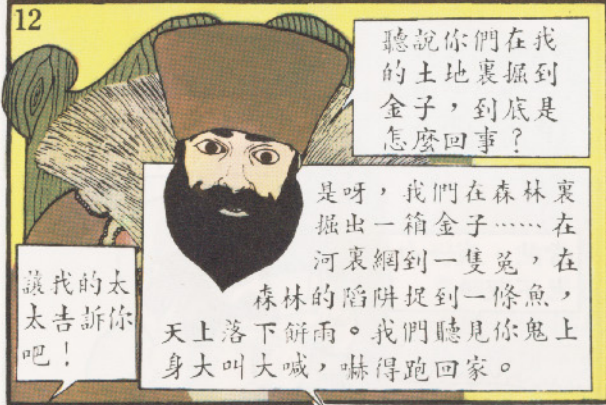 12
聽說你們在我
的土地裏掘到
金子，到底是
怎麼回事？
讓我的太
太告訴你
吧！
是呀，我們在森林裏
掘出一箱金子……在
河裏網到一隻兔，在
森林的陷阱捉到一條魚，
天上落下餅雨。我們聽見你鬼上
身大叫大喊，嚇得跑回家。